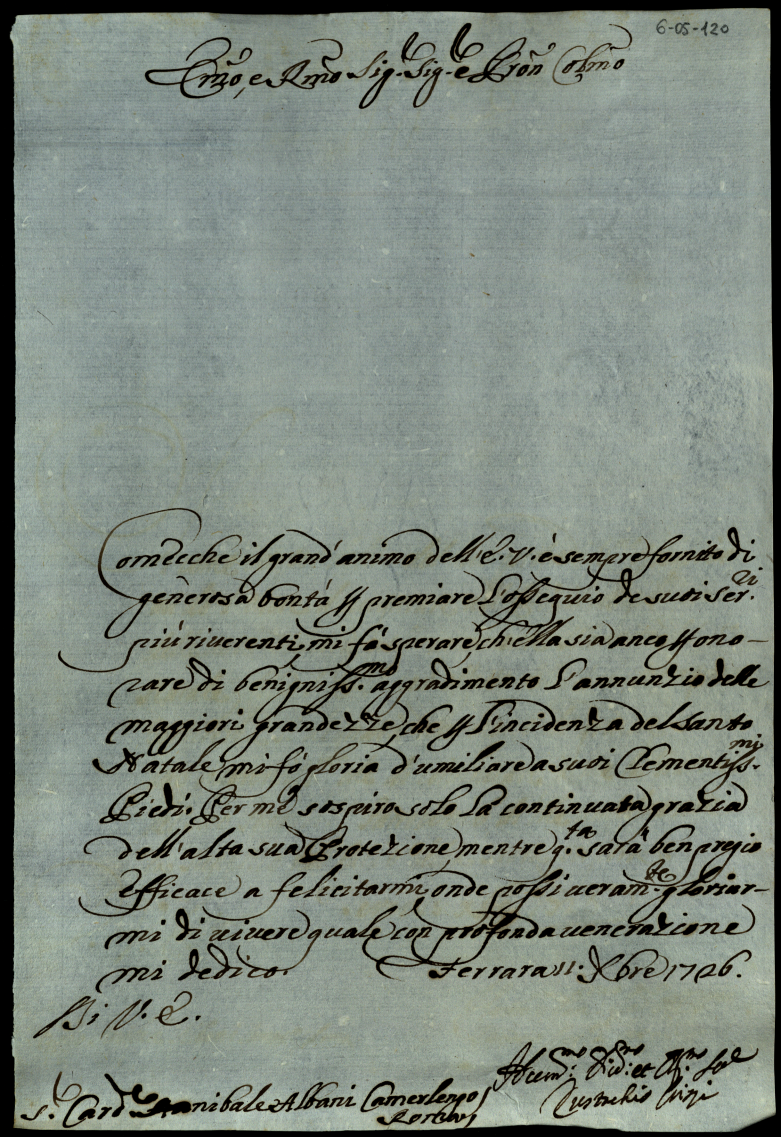 6-05-120
Emo, e Rmo Sig.r Sig.r e Pron Colmo
Comecche il grand'animo dell'E. V. è sempre fornito di
generosa bontà p premiare l'ossequio de suoi ser.ri
più riverenti, mi fà sperare, ch'ella sia anco p ono-
rare di benigniss.mo aggradimento l'annunzio delle
maggiori grandezze, che p l'incidenza del Santo
Natale, mi fò gloria d'umiliare a suoi Clementiss.mi
Piedi. Per me sospiro solo la continuata grazia
dell'alta sua Protezione, mentre q.ta sarà ben pregio
efficace a felicitarmi, onde possi veram.te gloriar-
mi di vivere quale con profonda venerazione
mi dedico. Ferrara 11. Xbre 1726.
Di V. E.
S.r Card.l Annibale Albani Camerlengo